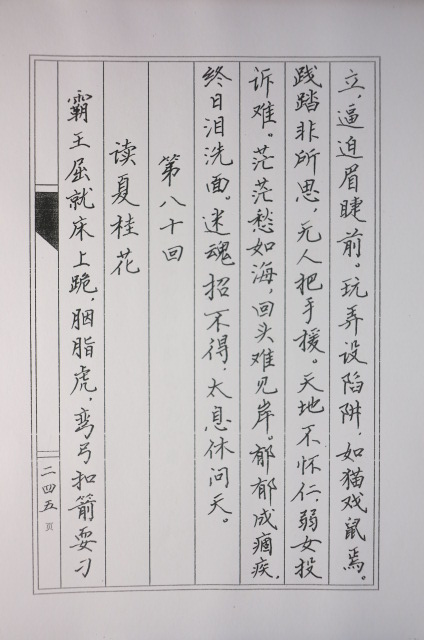 立，逼迫眉睫前。玩弄设陷阱，如猫戏鼠焉。
践踏非所思，无人把手援。天地不怀仁，弱女投
诉难。茫茫愁如海，回头难见岸。郁郁成痼疾，
终日泪洗面。迷魂招不得，太息休问天。
第八十回
读夏桂花
霸王屈就床上跪，胭脂虎，弯弓扣箭耍刁
二四五页